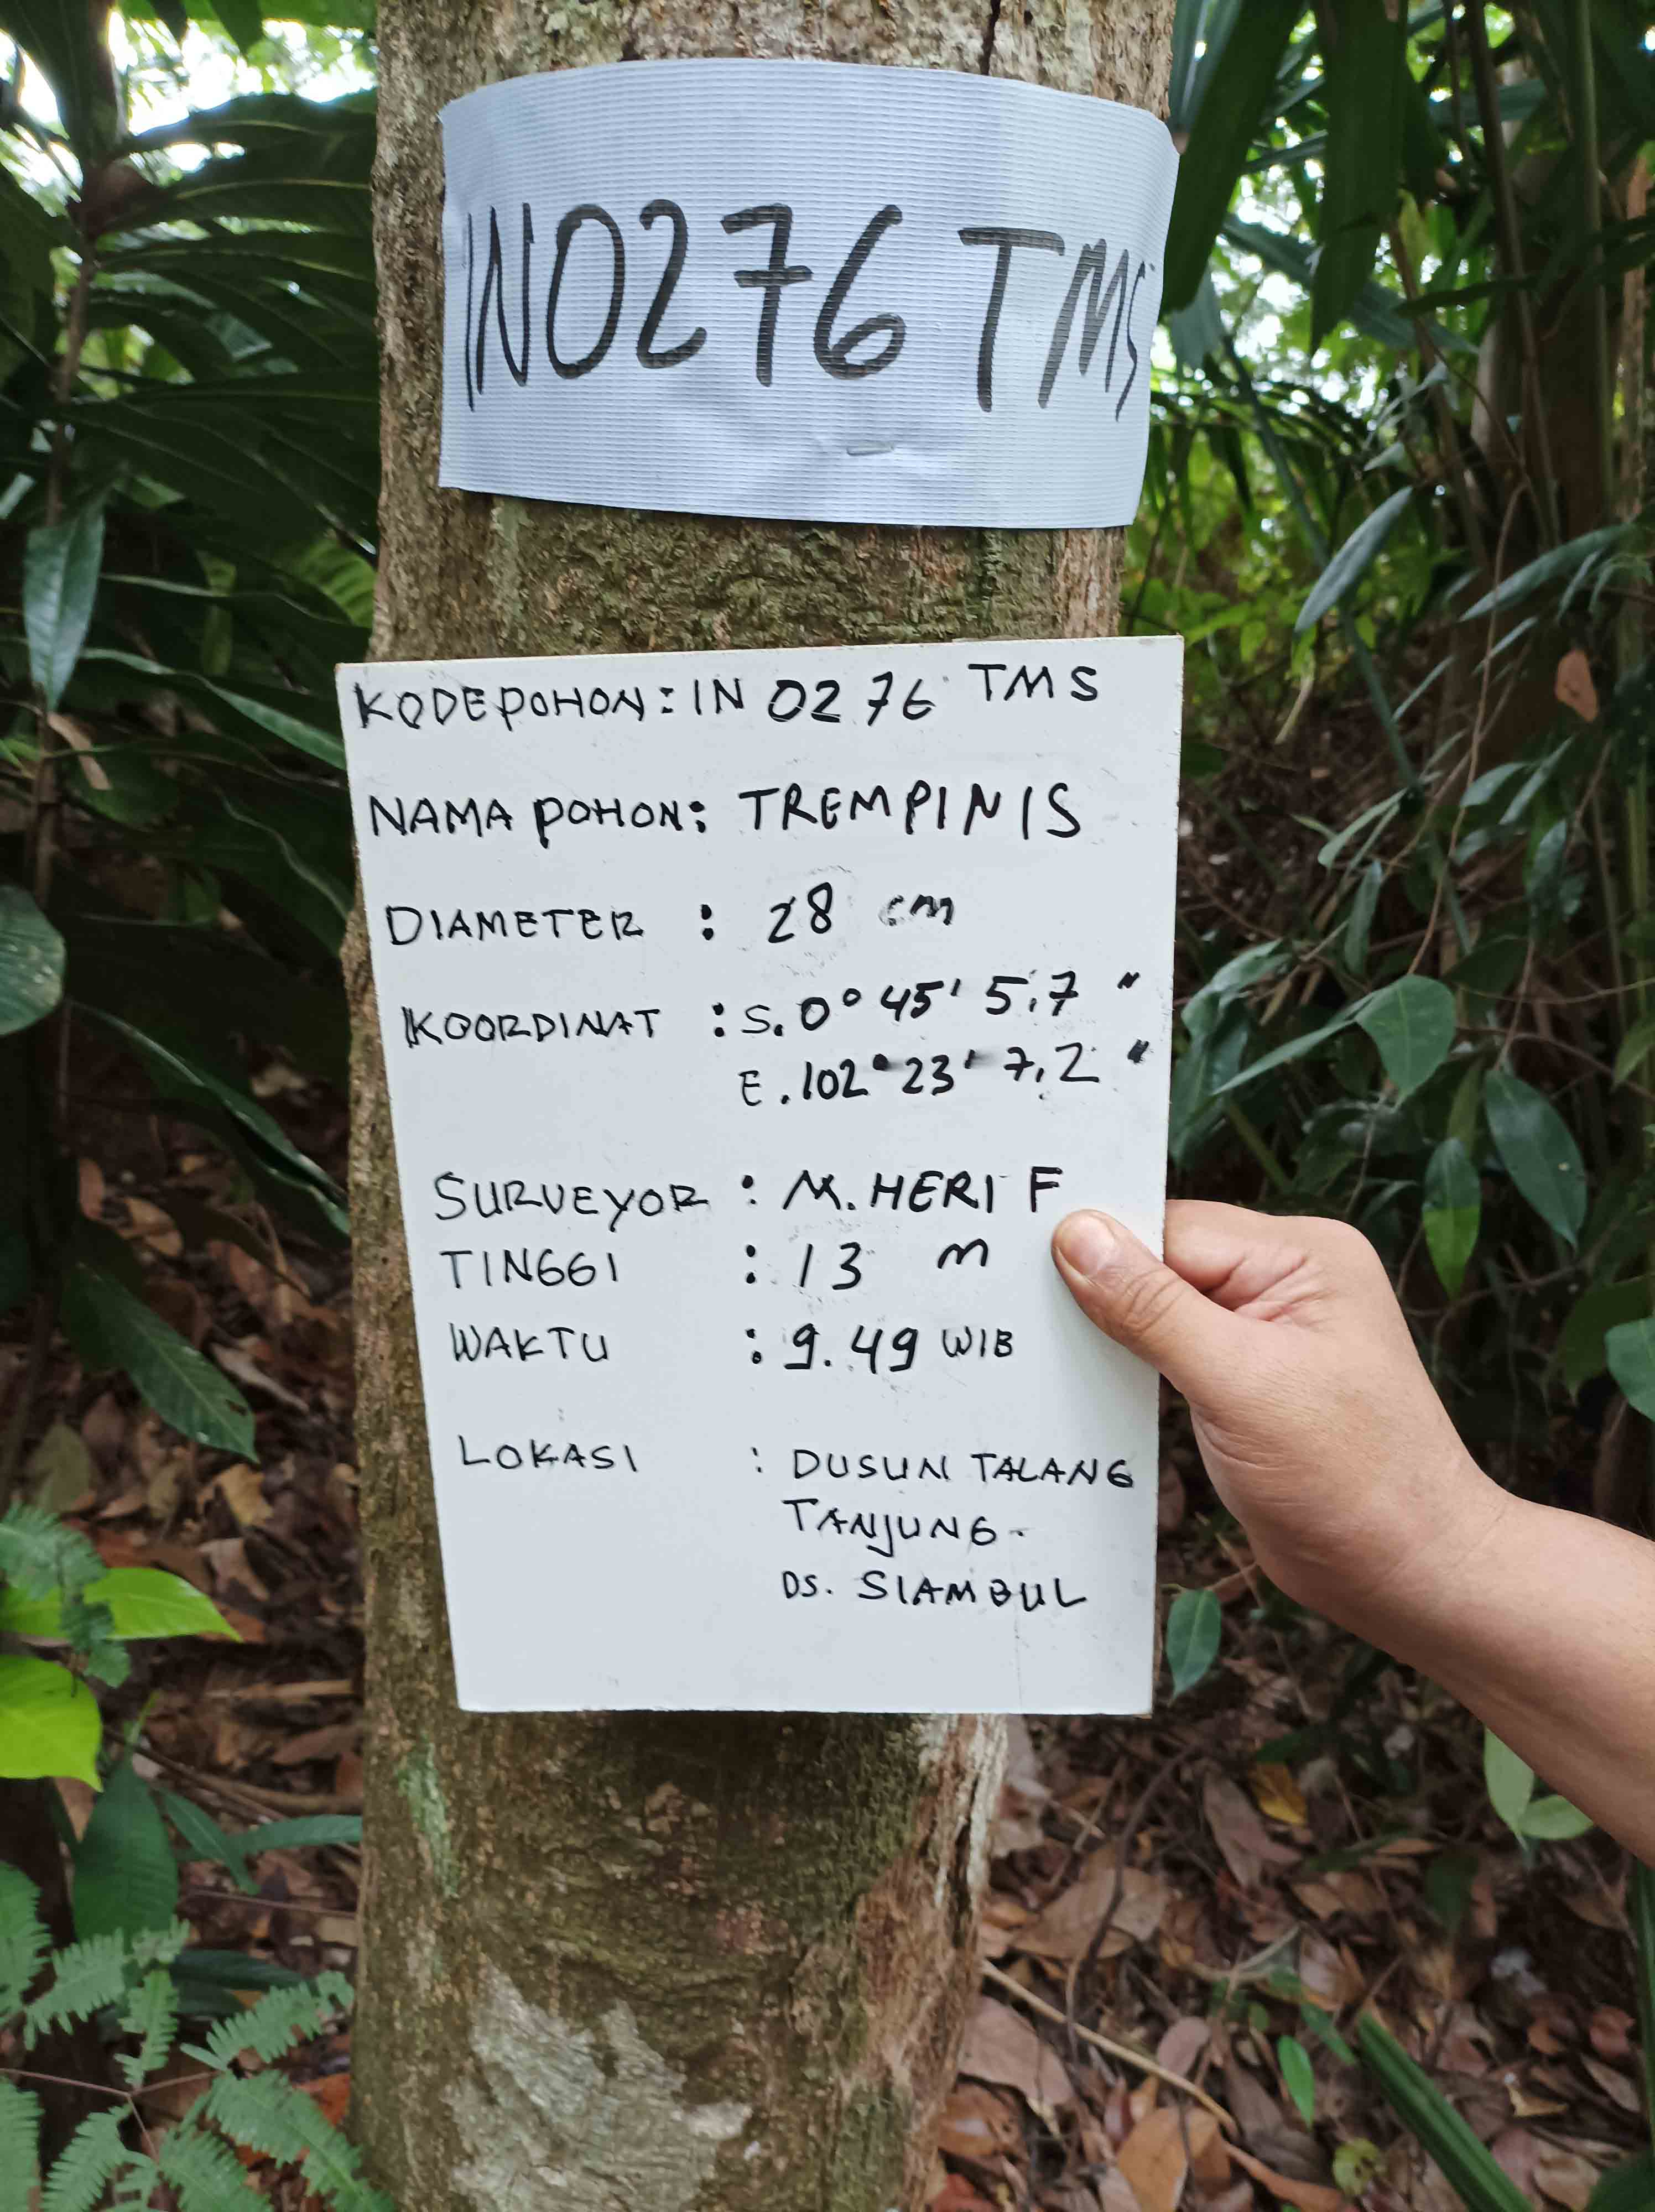 IN0276 TMS
KODE POHON : IN 0276 TMS
NAMA POHON : TREMPINIS
DIAMETER : 28 cm
KOORDINAT : S. 0° 45' 5,7 "
E. 102° 23' 7,2 "
SURVEYOR : M. HERI F
TINGGI : 13 m
WAKTU : 9.49 WIB
LOKASI : DUSUN TALANG
TANJUNG -
DS. SIAMBUL